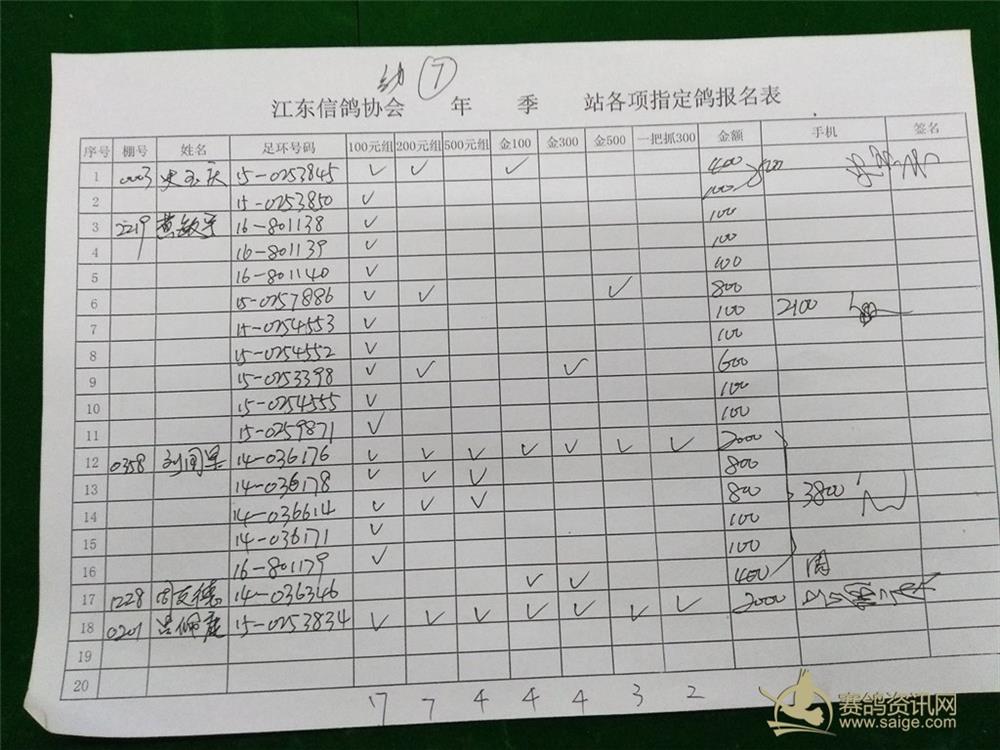 幼 ⑦
江东信鸽协会 年 季 站各项指定鸽报名表
序号 棚号 姓名 足环号码 100元组 200元组 500元组 金100 金300 金500 一把抓300 金额 手机 签名
1 0003 史玉庆 15-0253845 ✓ ✓ ✓ 400
2 15-0253850 ✓ 100
3 2219 黄敏子 16-801138 ✓ 100
4 16-801139 ✓ 100
5 16-801140 ✓ 100
6 15-0257886 ✓ ✓ ✓ 800
7 15-0254553 ✓ 100 2100
8 15-0254552 ✓ 100
9 15-0253398 ✓ ✓ ✓ 600
10 15-0254555 ✓ 100
11 15-0259871 ✓ 100
12 0358 14-036176 ✓ ✓ ✓ ✓ ✓ ✓ ✓ 2000
13 14-036178 ✓ ✓ ✓ 800
14 14-036614 ✓ ✓ ✓ 800 3800
15 14-036171 ✓ 100
16 16-801179 ✓ 100
17 1228 14-036346 ✓ ✓ 400 周
18 0201 15-0253834 ✓ ✓ ✓ ✓ ✓ ✓ ✓ 2000
19
20
17 7 4 4 4 3 2
赛鸽资讯网
www.saige.com